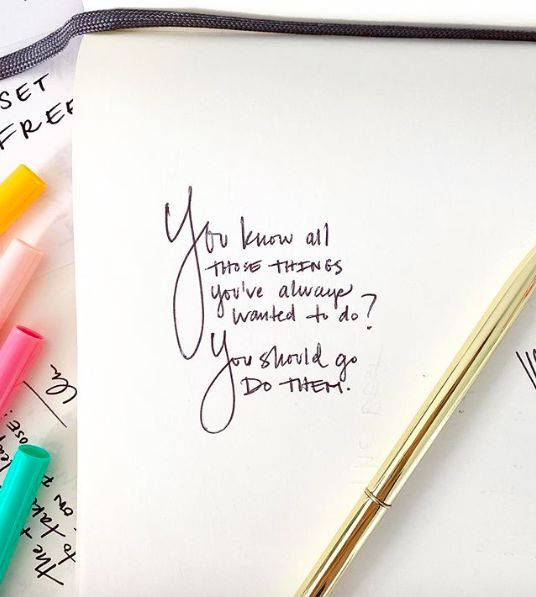 SET
FREE
You know all
THOSE THINGS
you've always
wanted to do?
You should go
DO THEM.
the
to take
on